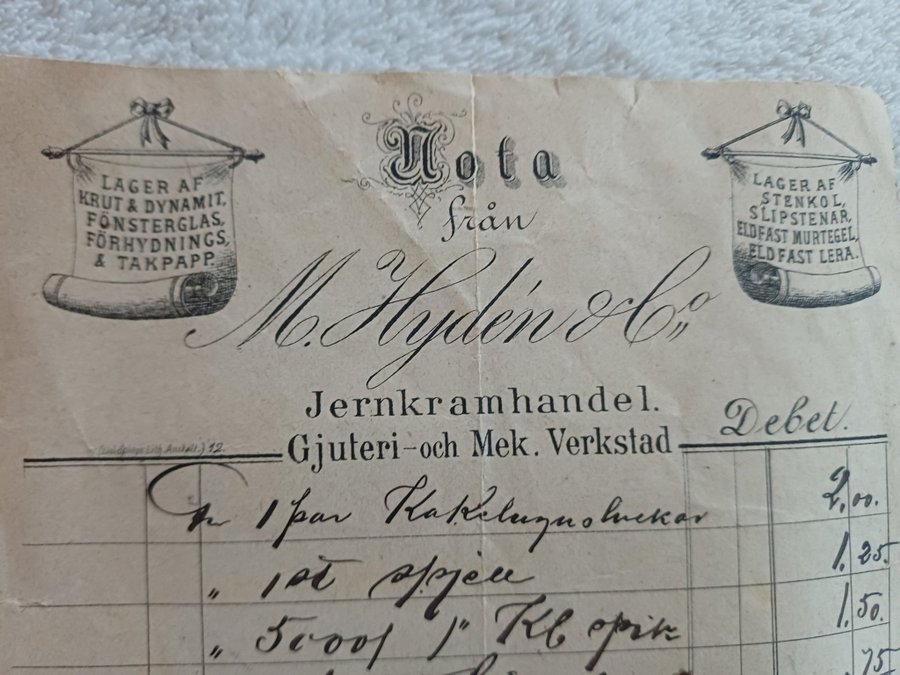 Nota
från
M. Hydén & Co
LAGER AF
KRUT & DYNAMIT,
FÖNSTERGLAS,
FÖRHYDNINGS,
& TAKPAPP.
LAGER AF
STENKOL,
SLIPSTENAR,
ELDFAST MURTEGEL,
ELDFAST LERA.
Jernkramhandel.
Gjuteri- och Mek. Verkstad
Debet.
1 par Kakelugnsluckor 2,00.
„ 1 st spjell 1,25.
„ 1" Kb spik 1,50.
75